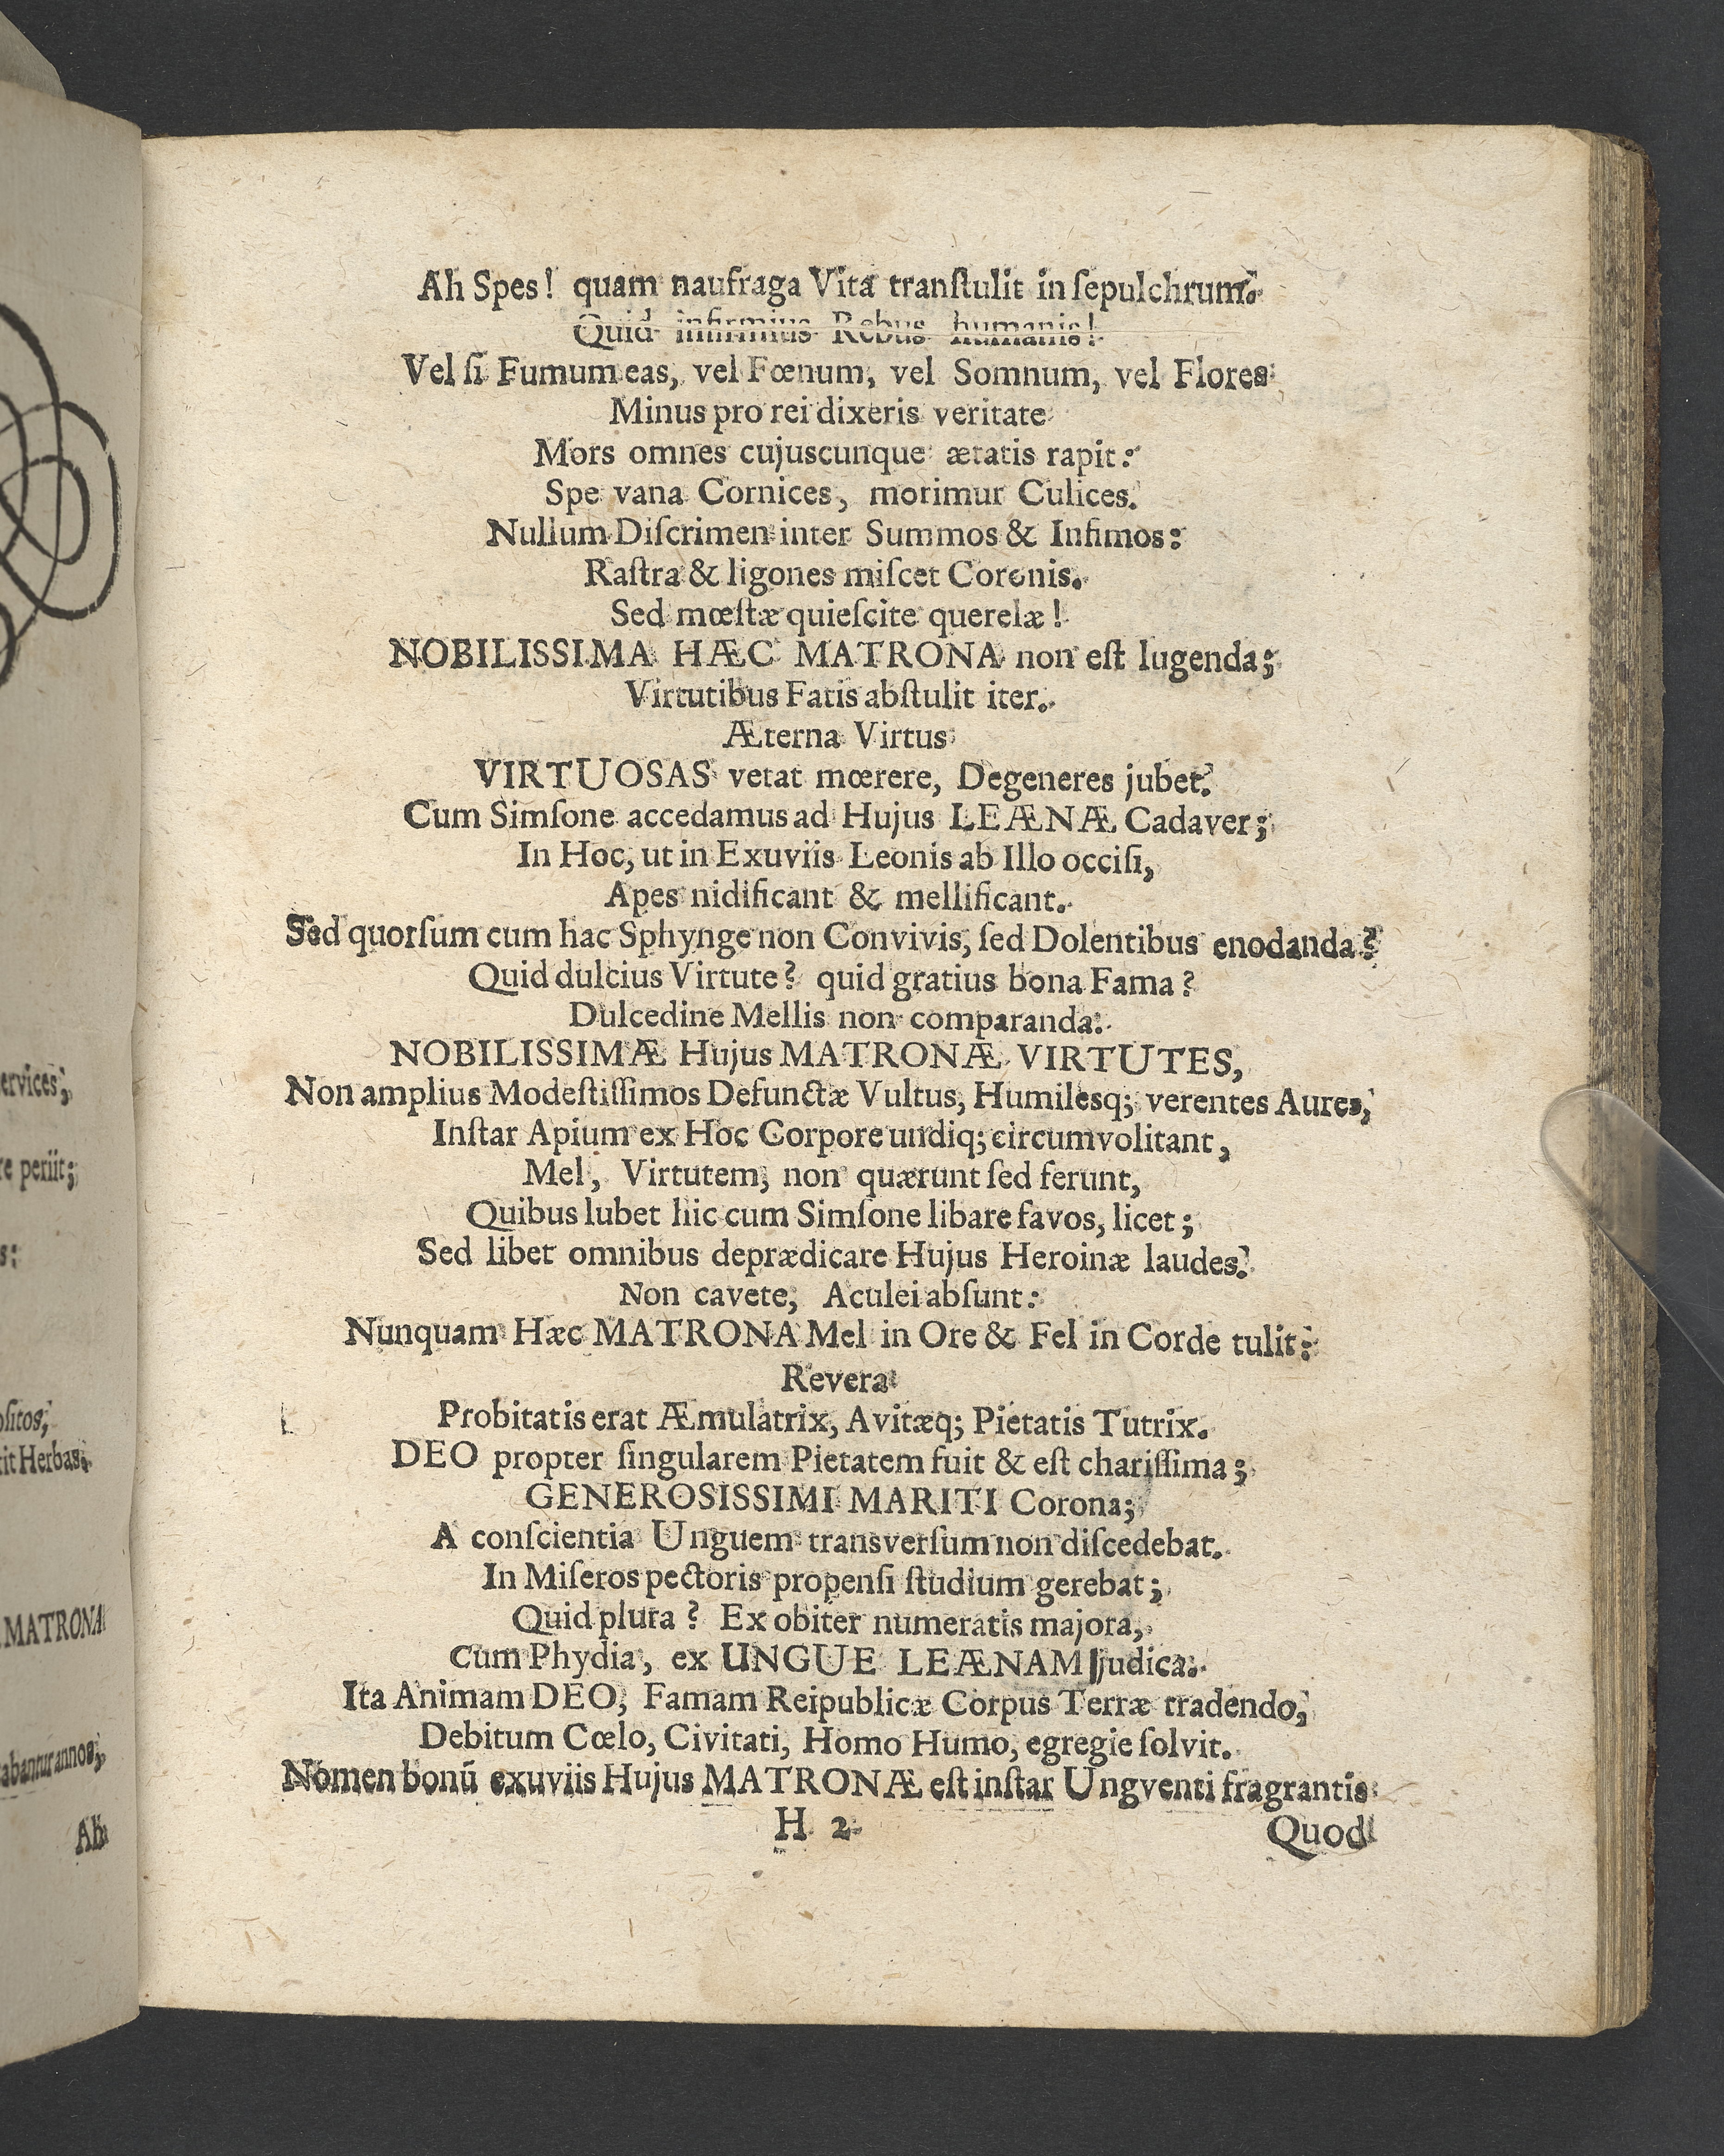 ervices;
re periit;
s:
ositos,
tit Herbas;
MATRONA
abantur annos,
Ah
Ah Spes! quam naufraga Vita tranſtulit in ſepulchrum.
Quid infirmius Rebus humanis!
Vel ſi Fumum eas, vel Fœnum, vel Somnum, vel Flores
Minus pro rei dixeris veritate
Mors omnes cujuscunque ætatis rapit:
Spe vana Cornices, morimur Culices.
Nullum Diſcrimen inter Summos & Infimos:
Raſtra & ligones miſcet Coronis.
Sed mœſtæ quieſcite querelæ!
NOBILISSIMA HÆC MATRONA non eſt lugenda;
Virtutibus Fatis abſtulit iter.
Æterna Virtus
VIRTUOSAS vetat mœrere, Degeneres jubet.
Cum Simſone accedamus ad Hujus LEÆNÆ Cadaver;
In Hoc, ut in Exuviis Leonis ab Illo occiſi,
Apes nidificant & mellificant.
Sed quorſum cum hac Sphynge non Convivis, ſed Dolentibus enodanda?
Quid dulcius Virtute? quid gratius bona Fama?
Dulcedine Mellis non comparanda.
NOBILISSIMÆ Hujus MATRONÆ VIRTUTES,
Non amplius Modeſtiſſimos Defunctæ Vultus, Humilesq; verentes Aures,
Inſtar Apium ex Hoc Corpore undiq; circumvolitant,
Mel, Virtutem, non quærunt ſed ferunt,
Quibus lubet hic cum Simſone libare favos, licet;
Sed libet omnibus deprædicare Hujus Heroinæ laudes.
Non cavete, Aculei abſunt:
Nunquam Hæc MATRONA Mel in Ore & Fel in Corde tulit:
Revera
Probitatis erat Æmulatrix, Avitæq; Pietatis Tutrix.
DEO propter ſingularem Pietatem fuit & eſt chariſſima;
GENEROSISSIMI MARITI Corona;
A conſcientia Unguem transverſum non diſcedebat.
In Miſeros pectoris propenſi ſtudium gerebat;
Quid plura? Ex obiter numeratis majora,
Cum Phydia, ex UNGUE LEÆNAM judica.
Ita Animam DEO, Famam Reipublicæ Corpus Terræ tradendo,
Debitum Cœlo, Civitati, Homo Humo, egregie ſolvit.
Nomen bonū exuviis Hujus MATRONÆ eſt inſtar Ungventi fragrantis
H 2
Quod